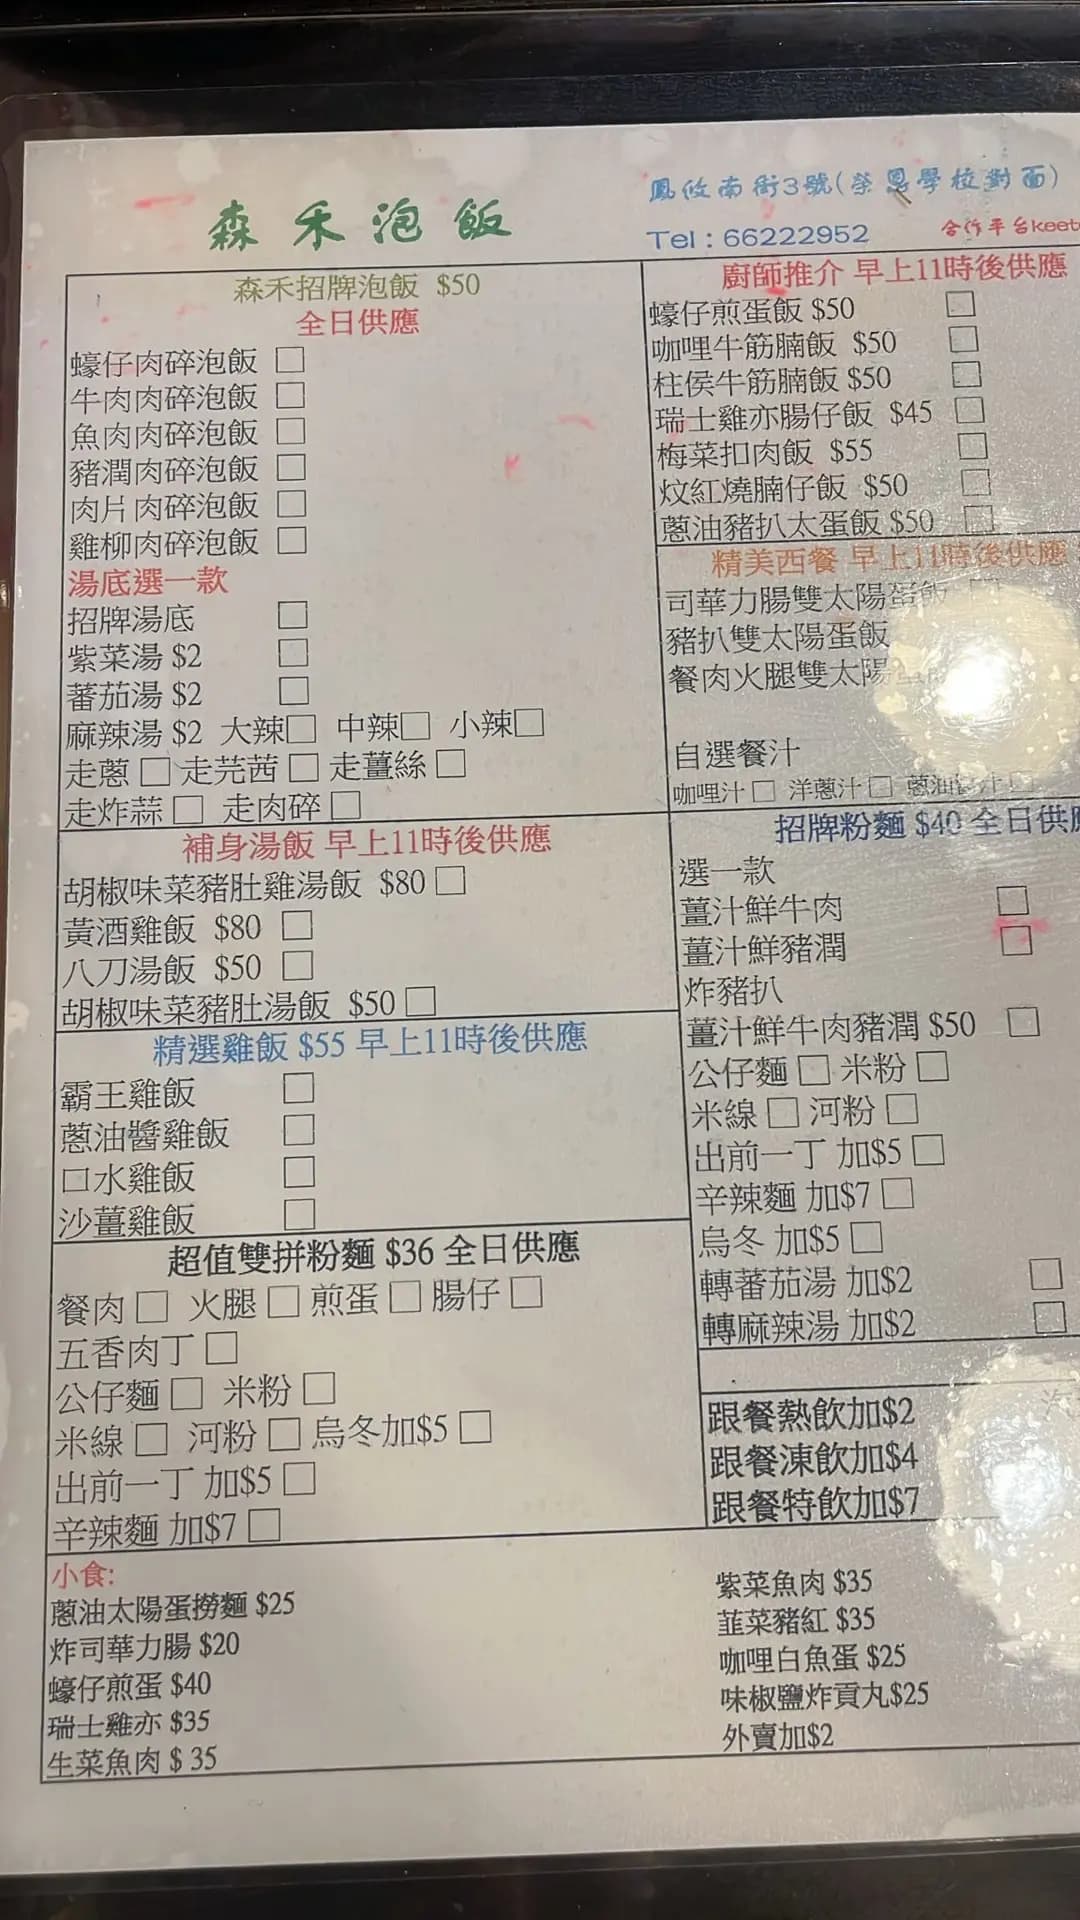 森禾泡飯
鳳攸南街3號(榮恩學校對面)
Tel : 66222952
合作平台keet
森禾招牌泡飯 $50
全日供應
蠔仔肉碎泡飯 □
牛肉肉碎泡飯 □
魚肉肉碎泡飯 □
豬潤肉碎泡飯 □
肉片肉碎泡飯 □
雞柳肉碎泡飯 □
湯底選一款
招牌湯底 □
紫菜湯 $2 □
蕃茄湯 $2 □
麻辣湯 $2 大辣□ 中辣□ 小辣□
走蔥 □ 走芫茜 □ 走薑絲 □
走炸蒜 □ 走肉碎 □
補身湯飯 早上11時後供應
胡椒味菜豬肚雞湯飯 $80 □
黃酒雞飯 $80 □
八刀湯飯 $50 □
胡椒味菜豬肚湯飯 $50 □
精選雞飯 $55 早上11時後供應
霸王雞飯 □
蔥油醬雞飯 □
口水雞飯 □
沙薑雞飯 □
超值雙拼粉麵 $36 全日供應
餐肉 □ 火腿 □ 煎蛋 □ 腸仔 □
五香肉丁 □
公仔麵 □ 米粉 □
米線 □ 河粉 □ 烏冬加$5 □
出前一丁 加$5 □
辛辣麵 加$7 □
廚師推介 早上11時後供應
蠔仔煎蛋飯 $50 □
咖哩牛筋腩飯 $50 □
柱侯牛筋腩飯 $50 □
瑞士雞亦腸仔飯 $45 □
梅菜扣肉飯 $55 □
炆紅燒腩仔飯 $50 □
蔥油豬扒太蛋飯 $50 □
精美西餐 早上11時後供應
司華力腸雙太陽蛋飯 □
豬扒雙太陽蛋飯
餐肉火腿雙太陽
自選餐汁
咖哩汁 □ 洋蔥汁 □ 蔥油 汁 □
招牌粉麵 $40 全日供應
選一款
薑汁鮮牛肉 □
薑汁鮮豬潤 □
炸豬扒
薑汁鮮牛肉豬潤 $50 □
公仔麵 □ 米粉 □
米線 □ 河粉 □
出前一丁 加$5 □
辛辣麵 加$7 □
烏冬 加$5 □
轉蕃茄湯 加$2 □
轉麻辣湯 加$2 □
跟餐熱飲加$2
跟餐凍飲加$4
跟餐特飲加$7
小食:
蔥油太陽蛋撈麵 $25
炸司華力腸 $20
蠔仔煎蛋 $40
瑞士雞亦 $35
生菜魚肉 $ 35
紫菜魚肉 $35
韮菜豬紅 $35
咖哩白魚蛋 $25
味椒鹽炸貢丸$25
外賣加$2